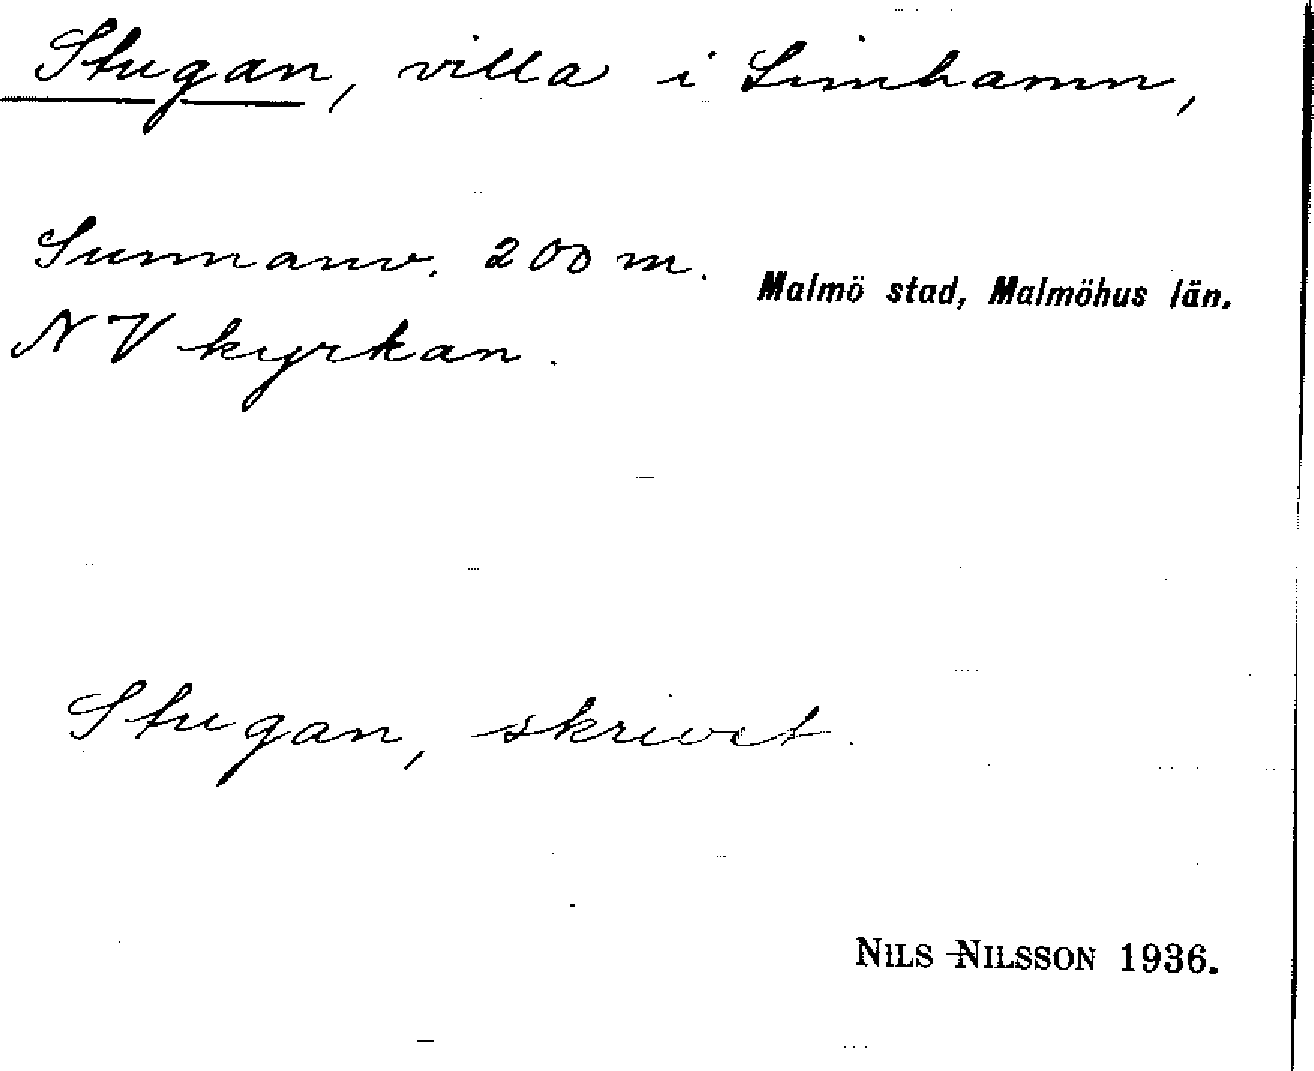 Stugan, villa i Limhamn,
Sunnanv. 200 m.
Malmö stad, Malmöhus län.
NV kyrkan.
Stugan, skrivet.
NILS NILSSON 1936.